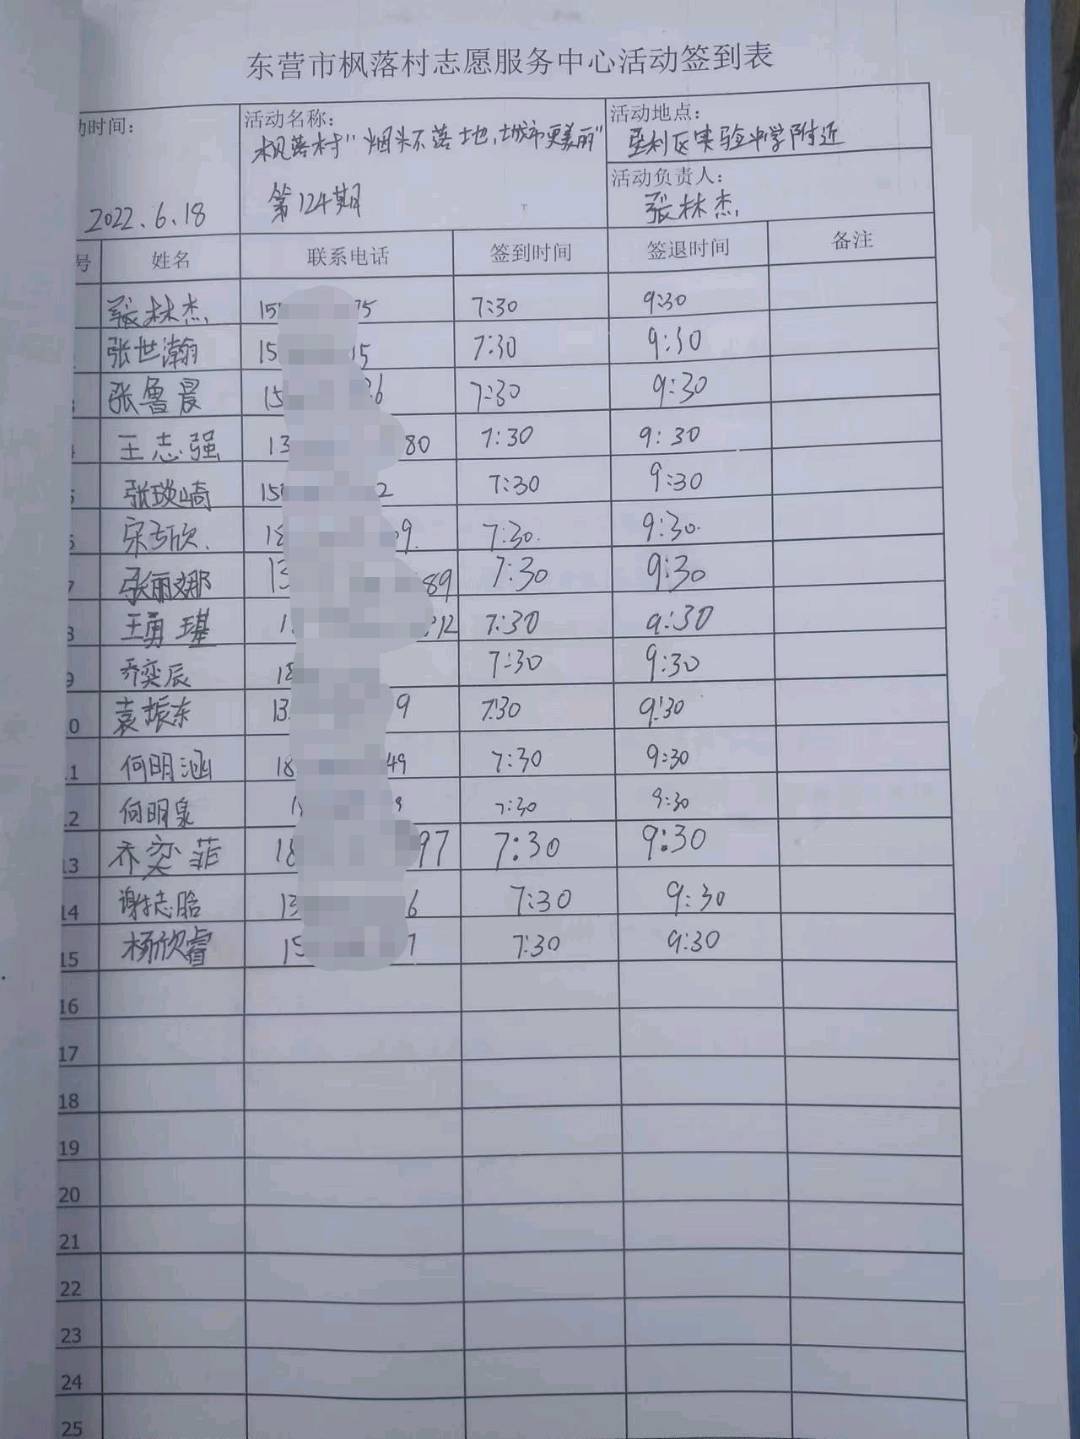 东营市枫落村志愿服务中心活动签到表
动时间: 活动名称: 活动地点:
枫落村"烟头不落地,城市更美丽" 垦利区实验中学附近
活动负责人:
2022.6.18 第124期 张林杰
号 姓名 联系电话 签到时间 签退时间 备注
张林杰 15 75 7:30 9:30
张世瀚 15 15 7:30 9:30
3 张鲁晨 15 36 7:30 9:30
4 王志强 13 80 7:30 9:30
5 张琰崎 15 2 7:30 9:30
6 宋 欣. 18 09. 7:30. 9:30.
7 张丽娜 13 89 7:30 9:30
8 王勇 1 12 7:30 9:30
9 乔奕辰 18 7:30 9:30
10 袁振东 13 9 7:30 9:30
11 何明涵 18 49 7:30 9:30
12 何明泉 1 7:30 9:30
13 乔奕菲 18 97 7:30 9:30
14 谢志 13 6 7:30 9:30
15 杨欣睿 15 7 7:30 9:30
16
17
18
19
20
21
22
23
24
25